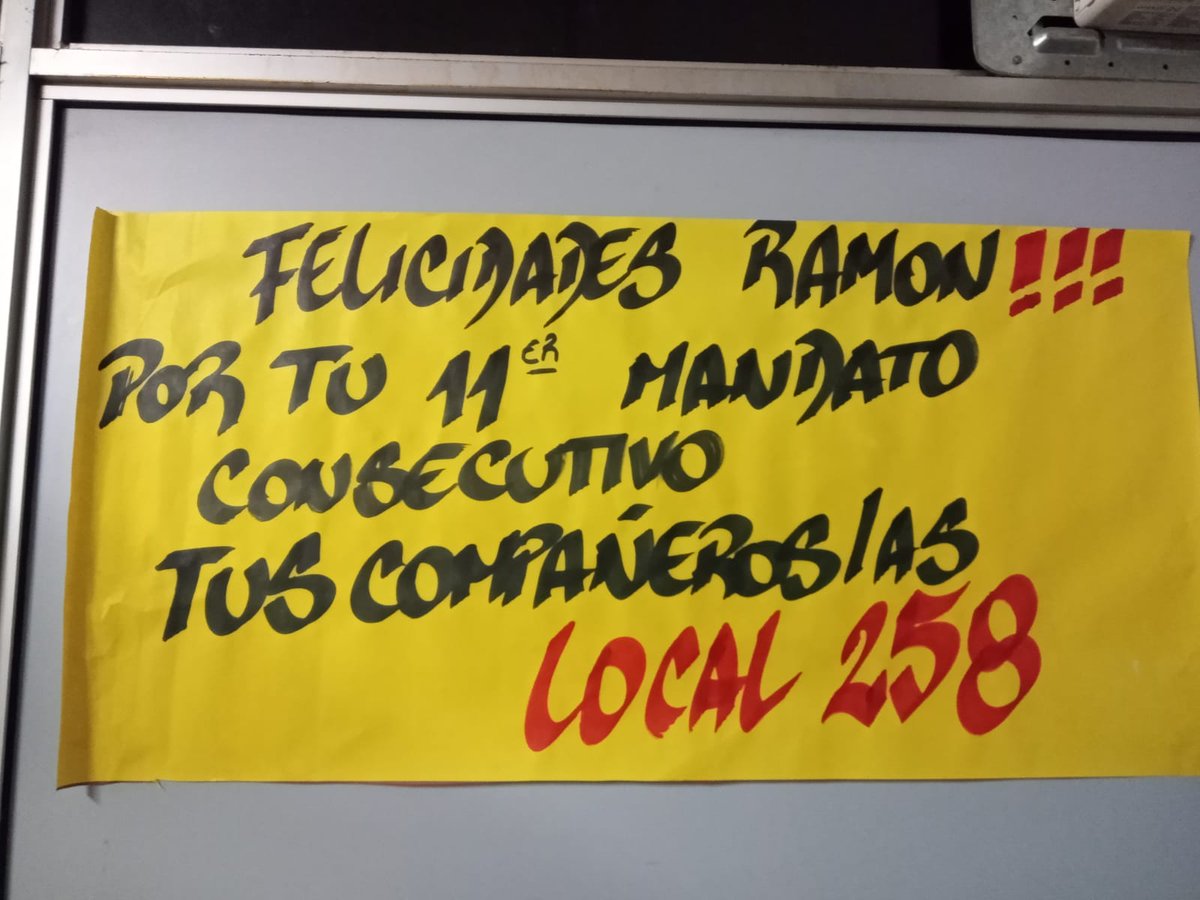 FELICIDADES RAMON!!!
POR TU 11ER MANDATO
CONSECUTIVO
TUS COMPAÑEROS/AS
LOCAL 258